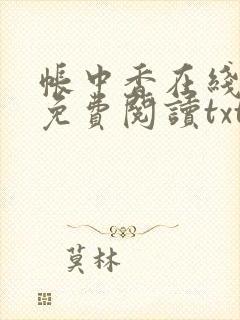 帳中香在綫
免費閱讀txt
莫林